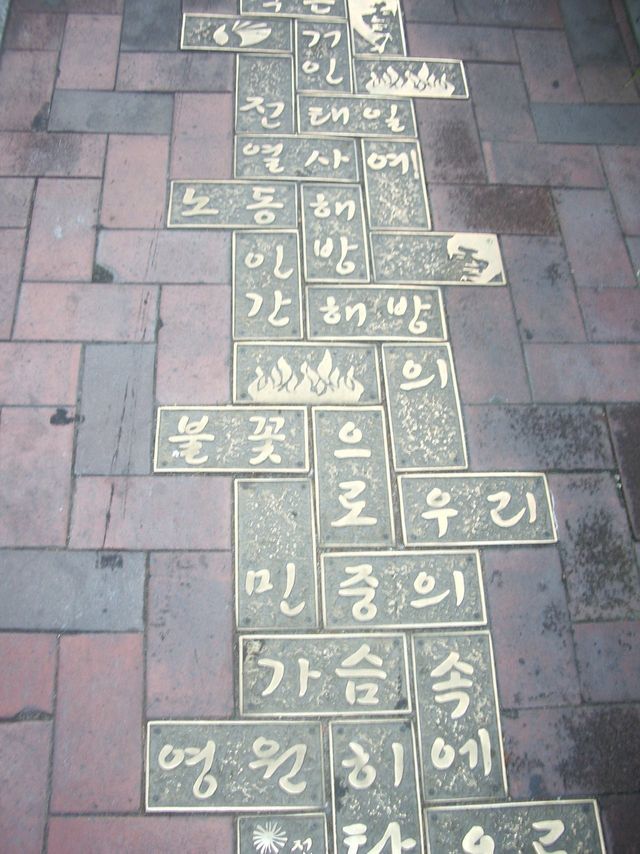 거
인
전 태일
열사 예
노동 해
방
인
간 해방
의
불꽃 으
로 우리
민 중의
가슴 속
영원히 에
전 타